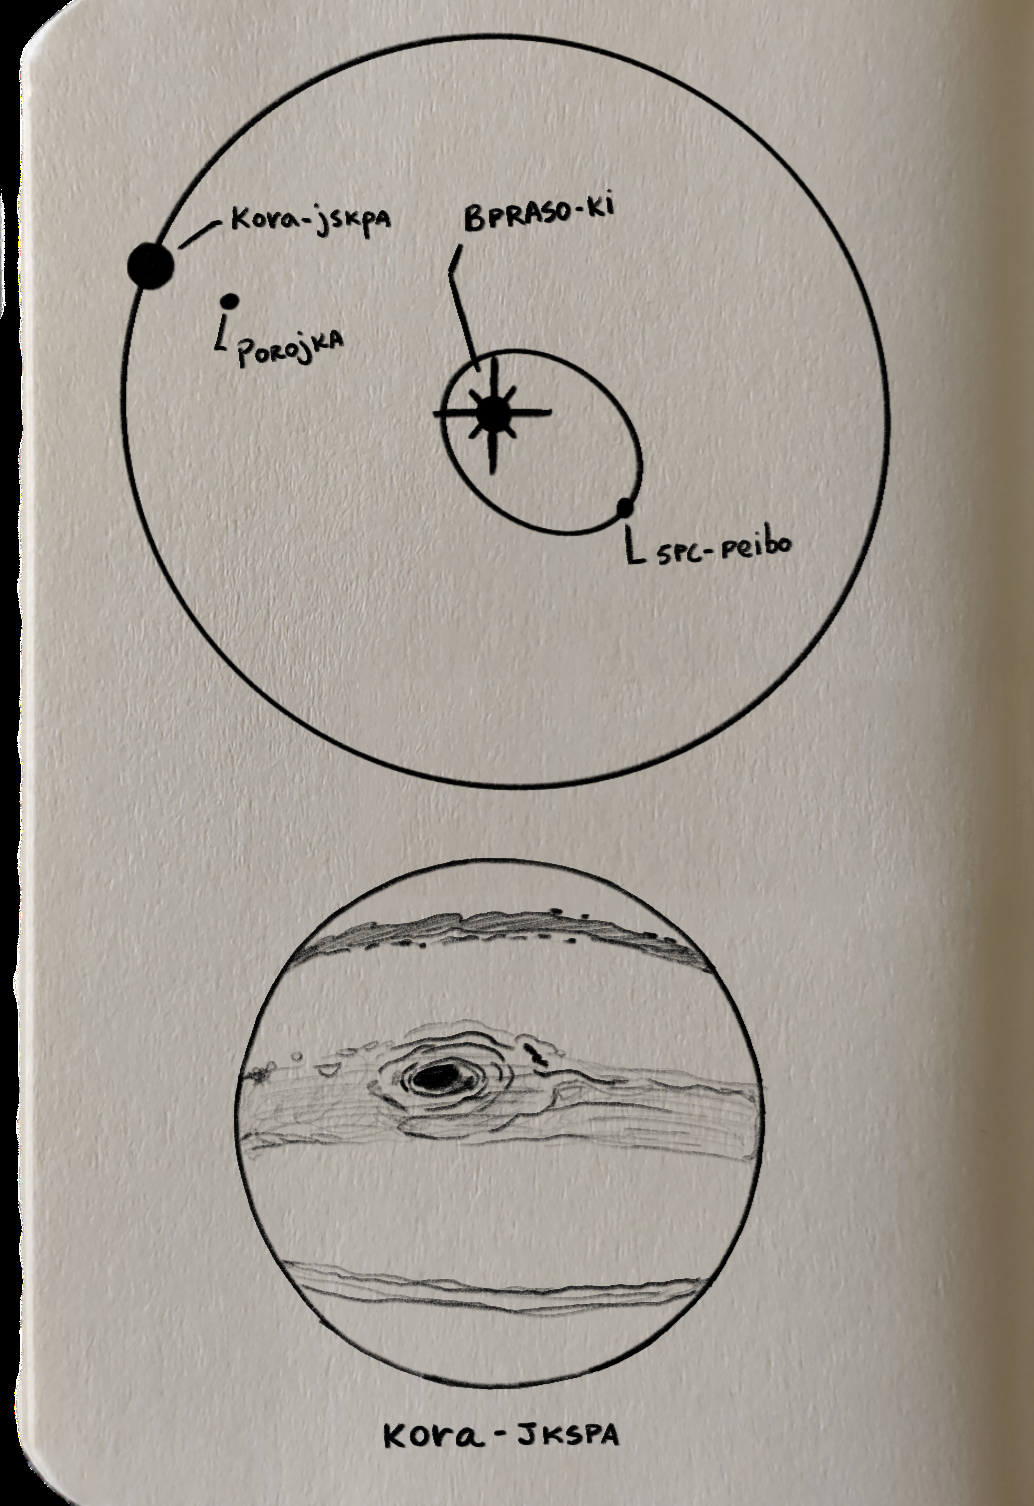 Kora-jSKPA
BPRASO-Ki
POROjKA
SPC-Peibo
Kora - JKSPA